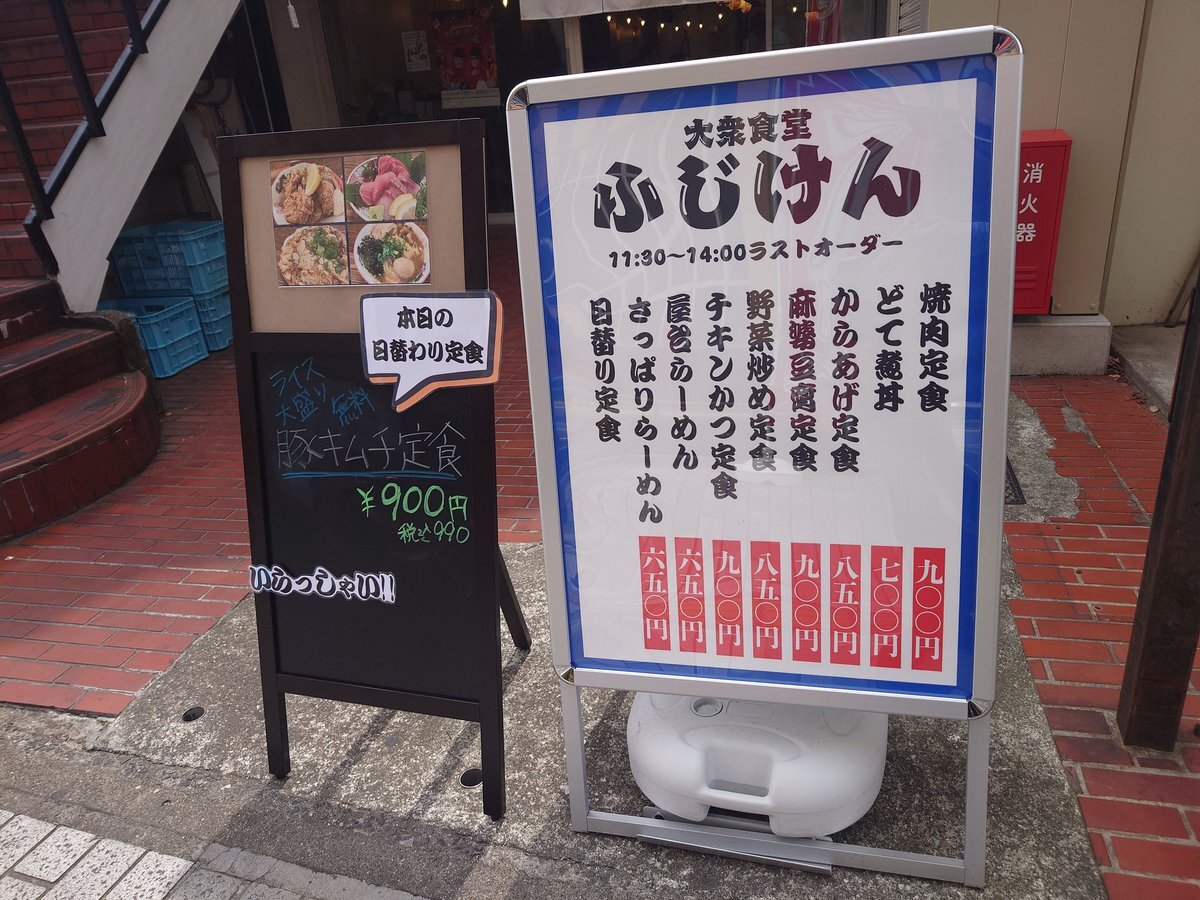 本日の
日替わり定食
ライス
大盛り
無料
豚キムチ定食
¥900円
税込990
いらっしゃい!!
大衆食堂
ふじけん
11:30〜14:00ラストオーダー
焼肉定食
どて煮丼
からあげ定食
麻婆豆腐定食
野菜炒め定食
チキンかつ定食
屋台らーめん
さっぱりらーめん
日替り定食
九〇〇円
七〇〇円
八五〇円
九〇〇円
八五〇円
九〇〇円
六五〇円
六五〇円
消火器